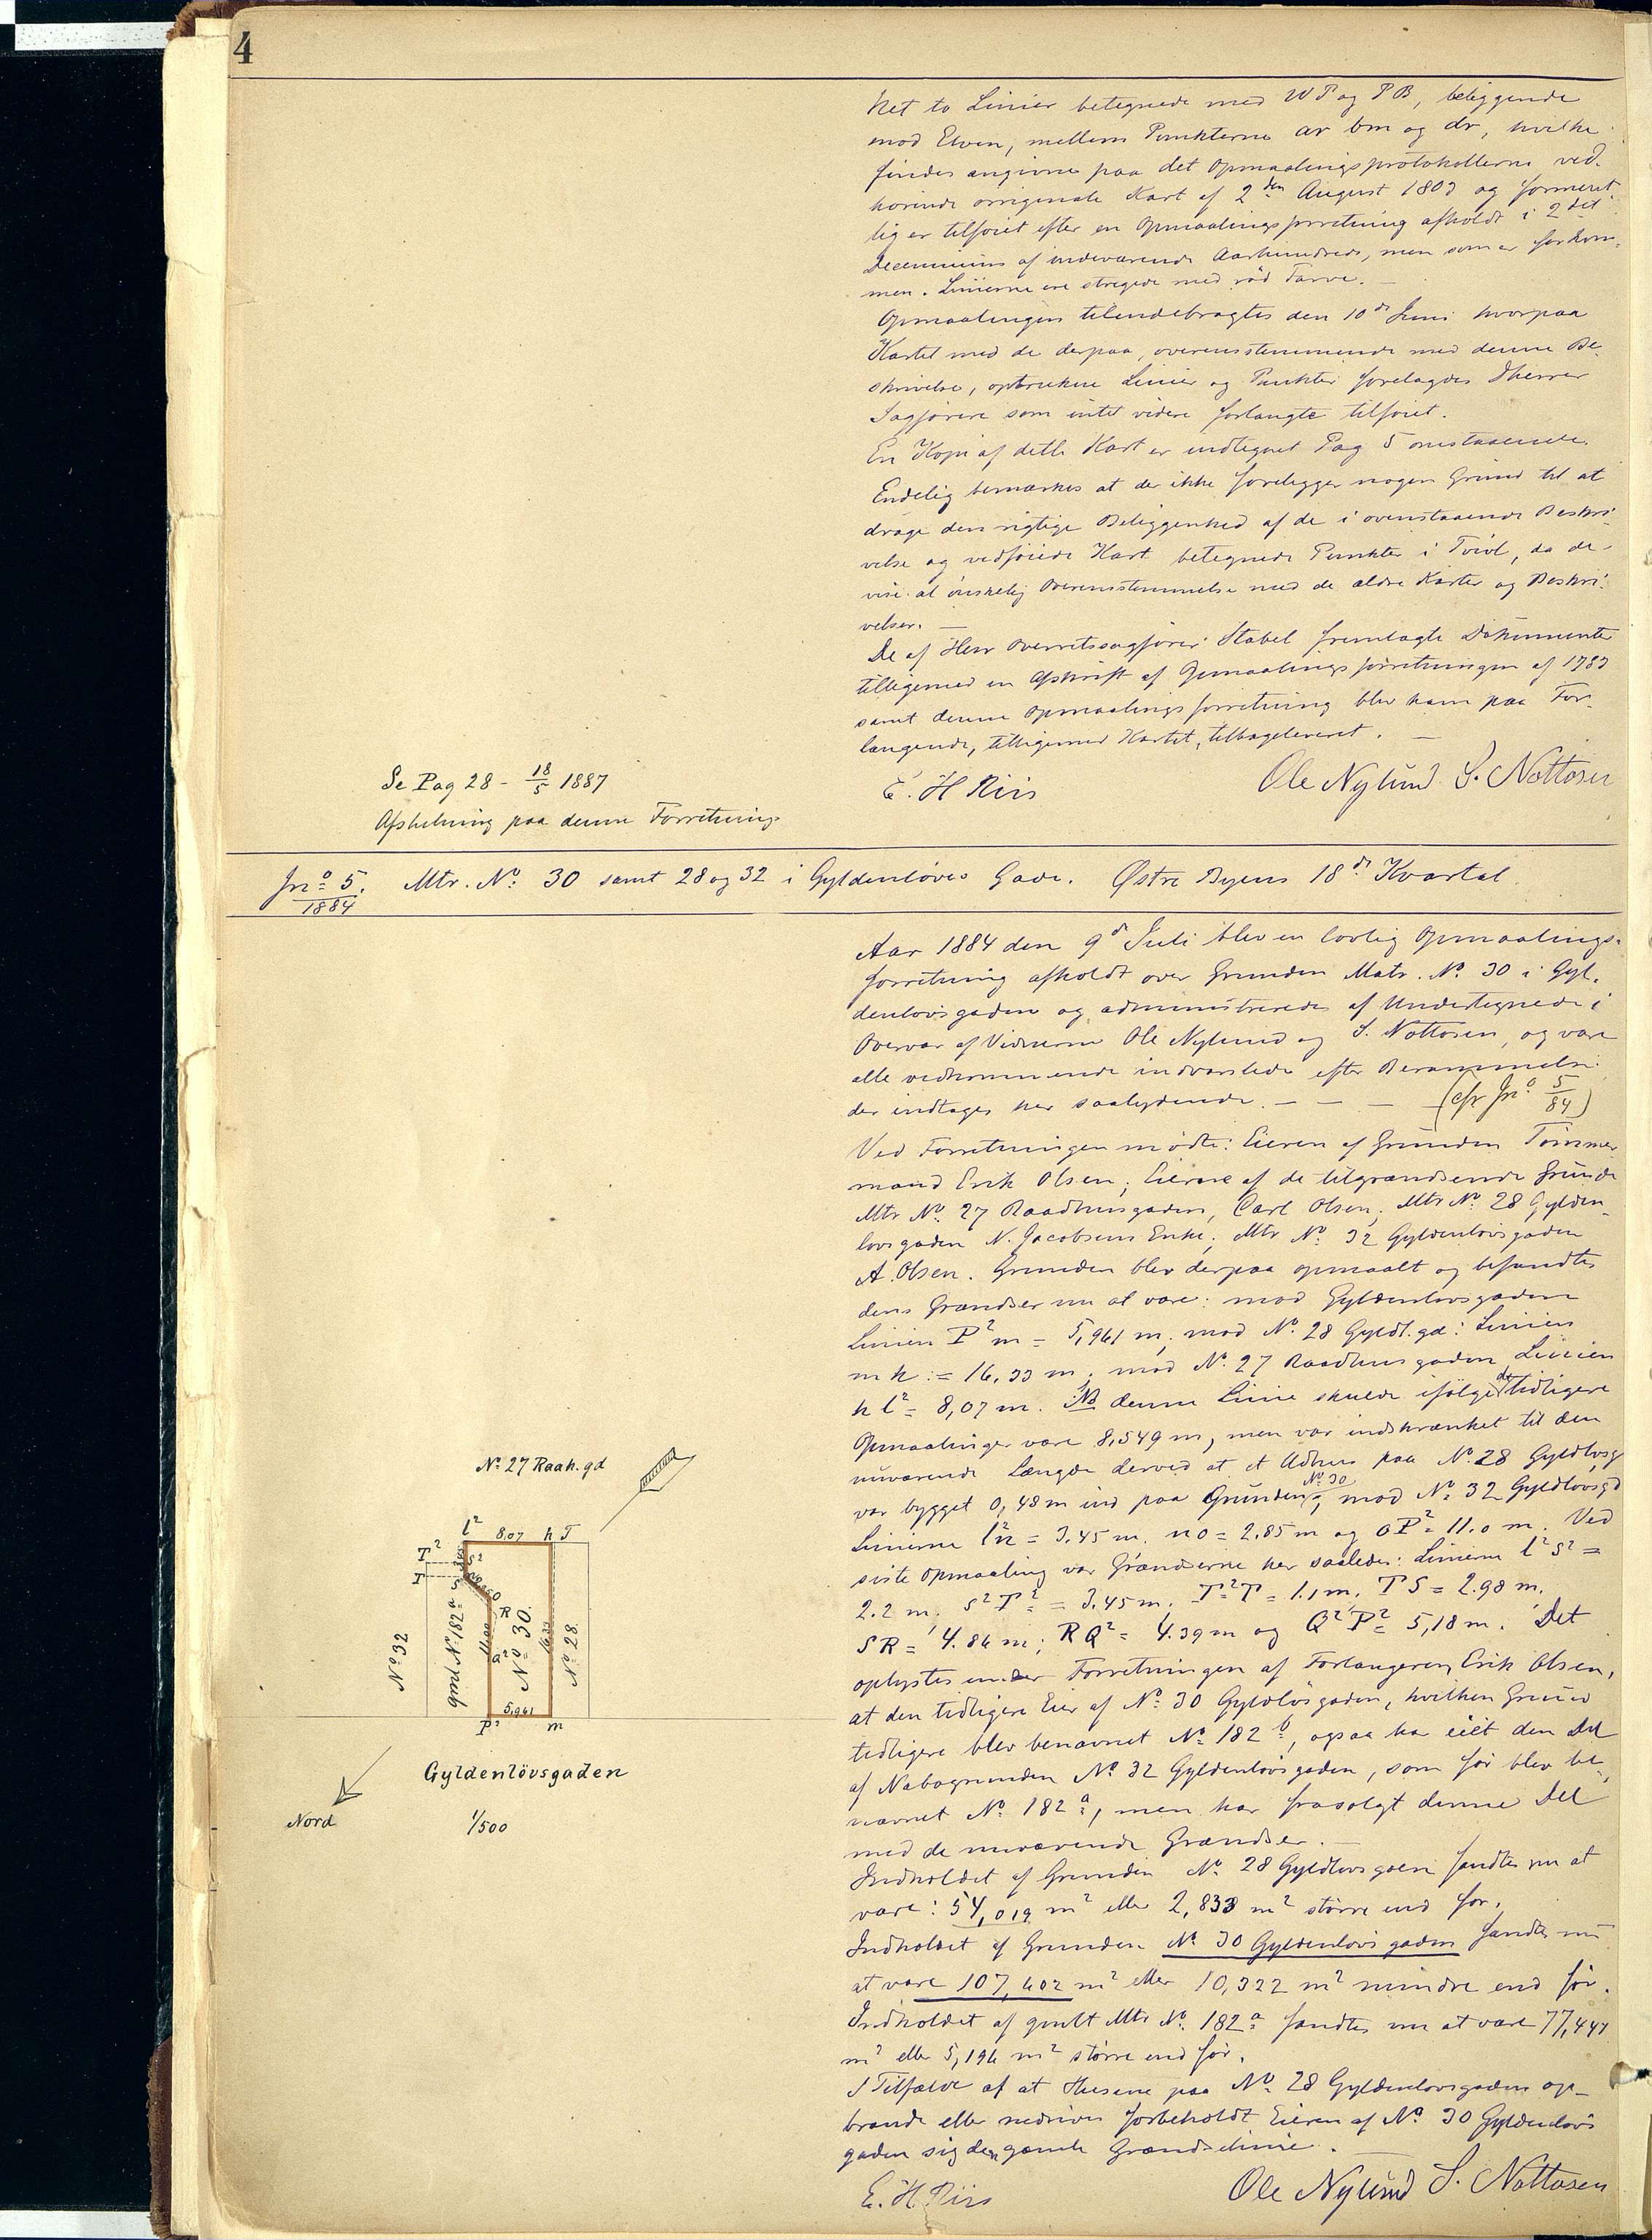 4
ket to Linier betegnede med W P og P B, beliggende
mod Elven, mellem Punkterne ar bm og dr, hvilke
findes angivne paa det Opmaalingsprotokollerne ved-
hörende originale Kart af 2den August 1803 og forment-
lig er tilföiet efter en Opmaalingsforretning afholdt i 2det
Decennium af indeværende Aarhundrede, men som er forkom-
men. Linierne ere stregede med röd Farve. —
Opmaalingen tilendebragtes den 10de Juni hvorpaa
Kartet med de derpaa, overensstemmende med denne Be-
skrivelse, optrukne Linier og Punkter forelagdes Dherrer
Sagförere som intet videre forlangte tilföiet.
En Kopi af dette Kart er indtegnet Pag 5 omstaaende.
Endelig bemærkes at der ikke foreligger nogen Grund til at
drage den rigtige Beliggenhed af de i ovenstaaende Beskri-
velse og vedföiede Kart betegnede Punkter i Tvivl, da de
vise al önskelig Overensstemmelse med de ældre Karter og Beskri-
velser. —
De af Herr Overretssagförer Stabel fremlagte Dokumenter
tilligemed en Afskrift af Opmaalingsforretningen af 1783
samt denne Opmaalingsforretning blev ham paa For-
langende, tilligemed Kartet, tilbageleveret. —
E. H Riis Ole Nylund S. Nottosen
Se Pag 28 - 18/5 1887
Afskrivning paa denne Forretning
Jno 5. / 1884 Mtr. No 30 samt 28 og 32 i Gyldenlöves Gade. Østre Byens 18de Kvartal
Aar 1884 den 9de Juli blev en lovlig Opmaalings-
forretning afholdt over Grunden Matr. No 30 i Gyl-
denlövsgaden og administreredes af Undertegnede i
Overvær af Vidnerne Ole Nylund og S. Nottosen, og vare
alle vedkommende indvarslede efter Berammelse
der indtages her saalydende. — — — (cfr Jno 5/84)
Ved Forretningen mödte: Eieren af Grunden Tömmer
mand Erik Olsen; Eierne af de tilgrændsende Grunde
Mtr No 27 Raadhusgaden, Carl Olsen; Mtr No 28 Gylden-
lövsgaden N. Jacobsens Enke; Mtr No 32 Gyldenlövsgaden
A. Olsen. Grunden blev derpaa opmaalt og befandtes
dens Grændser nu at være: mod Gyldenlövsgaden
Linien P2m = 5,961 m; mod No 28 Gyldl.gd: Linien
m h := 16,33 m; mod No 27 Raadhusgaden Linien
h l2 = 8,07 m. NB denne Linie skulde ifölge de tidligere
Opmaalinger være 8,549 m, men var indskrænket til den
nuværende Længde derved at et Udhus paa No 28 Gyldlvsg
var bygget 0,48 m ind paa Grunden No 30; mod No 32 Gyldlövsgd
Linierne l2n = 3.45 m. no = 2.85 m og OP2 = 11.0 m. Ved
siste Opmaaling var Grændserne her saaledes: Linierne l2S2 =
2.2 m; S2T2 = 3.45 m; T2T = 1.1 m; TS = 2.98 m.
SR = 4.86 m; RQ2 = 4.39 m og Q2P2 = 5,18 m. Det
oplystes under Forretningen af Forlangeren, Erik Olsen,
at den tidligere Eier af No 30 Gyldlösgaden, hvilken Grund
tidligere blev benævnet No 182b, ogsaa har eiet den Del
af Nabogrunden No 32 Gyldenlövsgaden, som för blev be-
nævnet No 182a, men har frasolgt denne Del
med de nuværende Grændser. —
Indholdet af Grunden No 28 Gyldlövsgaden fandtes nu at
være: 54,019 m2 eller 2,833 m2 större end för.
Indholdet af Grunden No 30 Gyldenlövsgaden fandtes nu
at være 107,602 m2 eller 10,322 m2 mindre end för.
Indholdet af gmlt Mtr No 182a fandtes nu at være 77,447
m2 eller 5,196 m2 större end för.
I Tilfælde af at Husene paa No 28 Gyldenlövsgaden op-
brænde eller nedrives forbeholdt Eieren af No 30 Gyldenlövs
gaden sig den gamle Grændselinie. —
E. H. Riis Ole Nylund S. Nottosen
No 27 Raah. gd
l2 8.07 h T
T2 S2
T S
3.45
2.85
O
R
No 32
gml No 182a
11.00
a2
No 30.
16.33
No 28.
5,961
P2 m
Gyldenlövsgaden
Nord
1/500